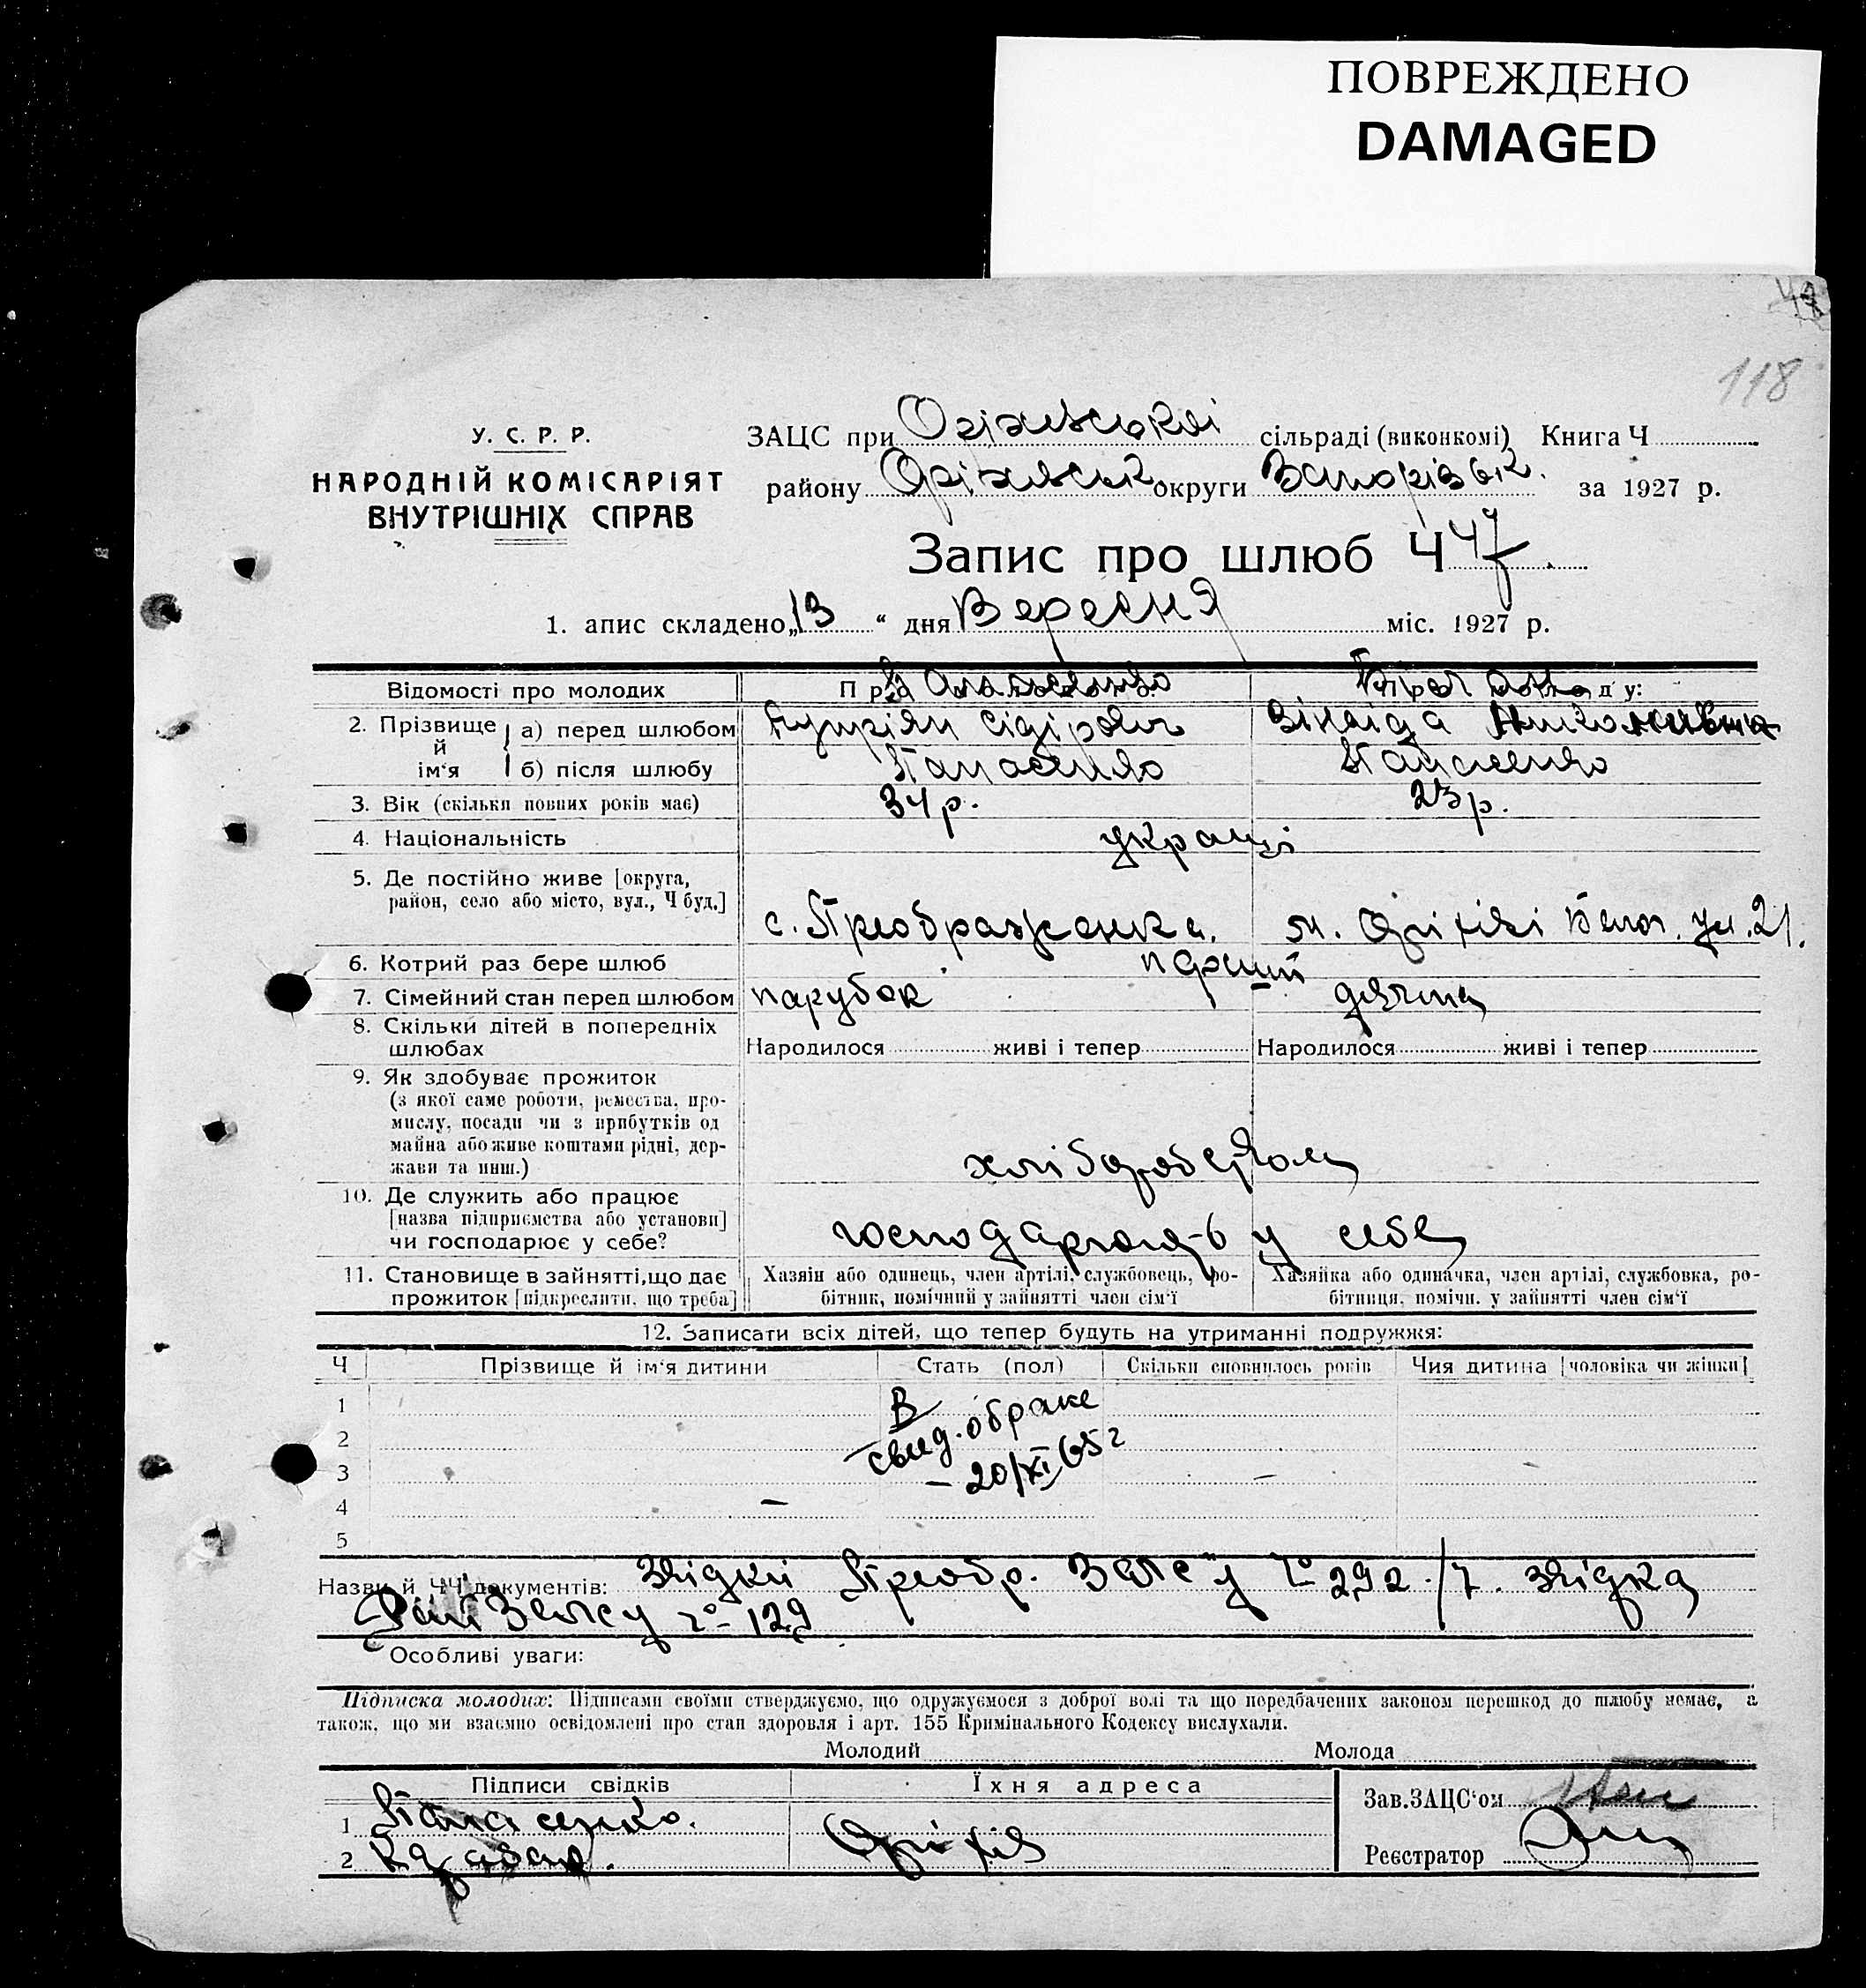 ПОВРЕЖДЕНО
DAMAGED
118
У. С. Р. Р.
НАРОДНІЙ КОМІСАРІЯТ
ВНУТРІШНІХ СПРАВ
ЗАЦС при Оріхівській сільраді (виконкомі) Книга Ч
району Оріхівськ округи Запорізьк. за 1927 р.
Запис про шлюб Ч 47
1. апис складено „13“ дня Вересня міс. 1927 р.
Відомості про молодих
Панасенко
2. Прізвище й ім‘я
а) перед шлюбом Купріян Сідірович Зінаїда
б) після шлюбу Панасенко Панасенко
3. Вік (скільки повних років має) 34 р. 23 р.
4. Національність україн
5. Де постійно живе [округа, район, село або місто, вул., Ч буд.]
с. Преображенка. м. Оріхів ул. 21.
6. Котрий раз бере шлюб перший
7. Сімейний стан перед шлюбом парубок дівчина
8. Скільки дітей в попередніх шлюбах
Народилося живі і тепер Народилося живі і тепер
9. Як здобуває прожиток
(з якої саме роботи, ремества, про-
мислу, посади чи з прибутків од
майна або живе коштами рідні, дер-
жави та инш.)
хліборобством
10. Де служить або працює
[назва підприємства або установи]
чи господарює у себе?
господарюють у себе
11. Становище в зайнятті, що дає
прожиток [підкреслити, що треба]
Хазяін або одинець, член артілі, службовець, ро-
бітник, помічний у зайнятті член сім‘ї
Хазяйка або одиначка, член артілі, службовка, ро-
бітниця, помічн. у зайнятті член сім‘ї
12. Записати всіх дітей, що тепер будуть на утриманні подружжя:
Ч Прізвище й ім‘я дитини Стать (пол) Скільки сповнилось років Чия дитина [чоловіка чи жінки]
1
2
3
4
5
В
свид. о браке
20/XI 65 г
Назви й ЧЧ документів: звідки Преобр. ЗАГСу № 292 звідка
Рай ЗАГСу № 129
Особливі уваги:
Підписка молодих: Підписами своїми стверджуємо, що одружуємося з доброї волі та що передбачених законом перешкод до шлюбу немає, а
також, що ми взаємно освідомлені про стан здоровля і арт. 155 Кримінального Кодексу вислухали.
Молодий Молода
Підписи свідків Їхня адреса
1 Панасенко.
2 Оріхів
Зав.ЗАЦС‘ом
Реєстратор